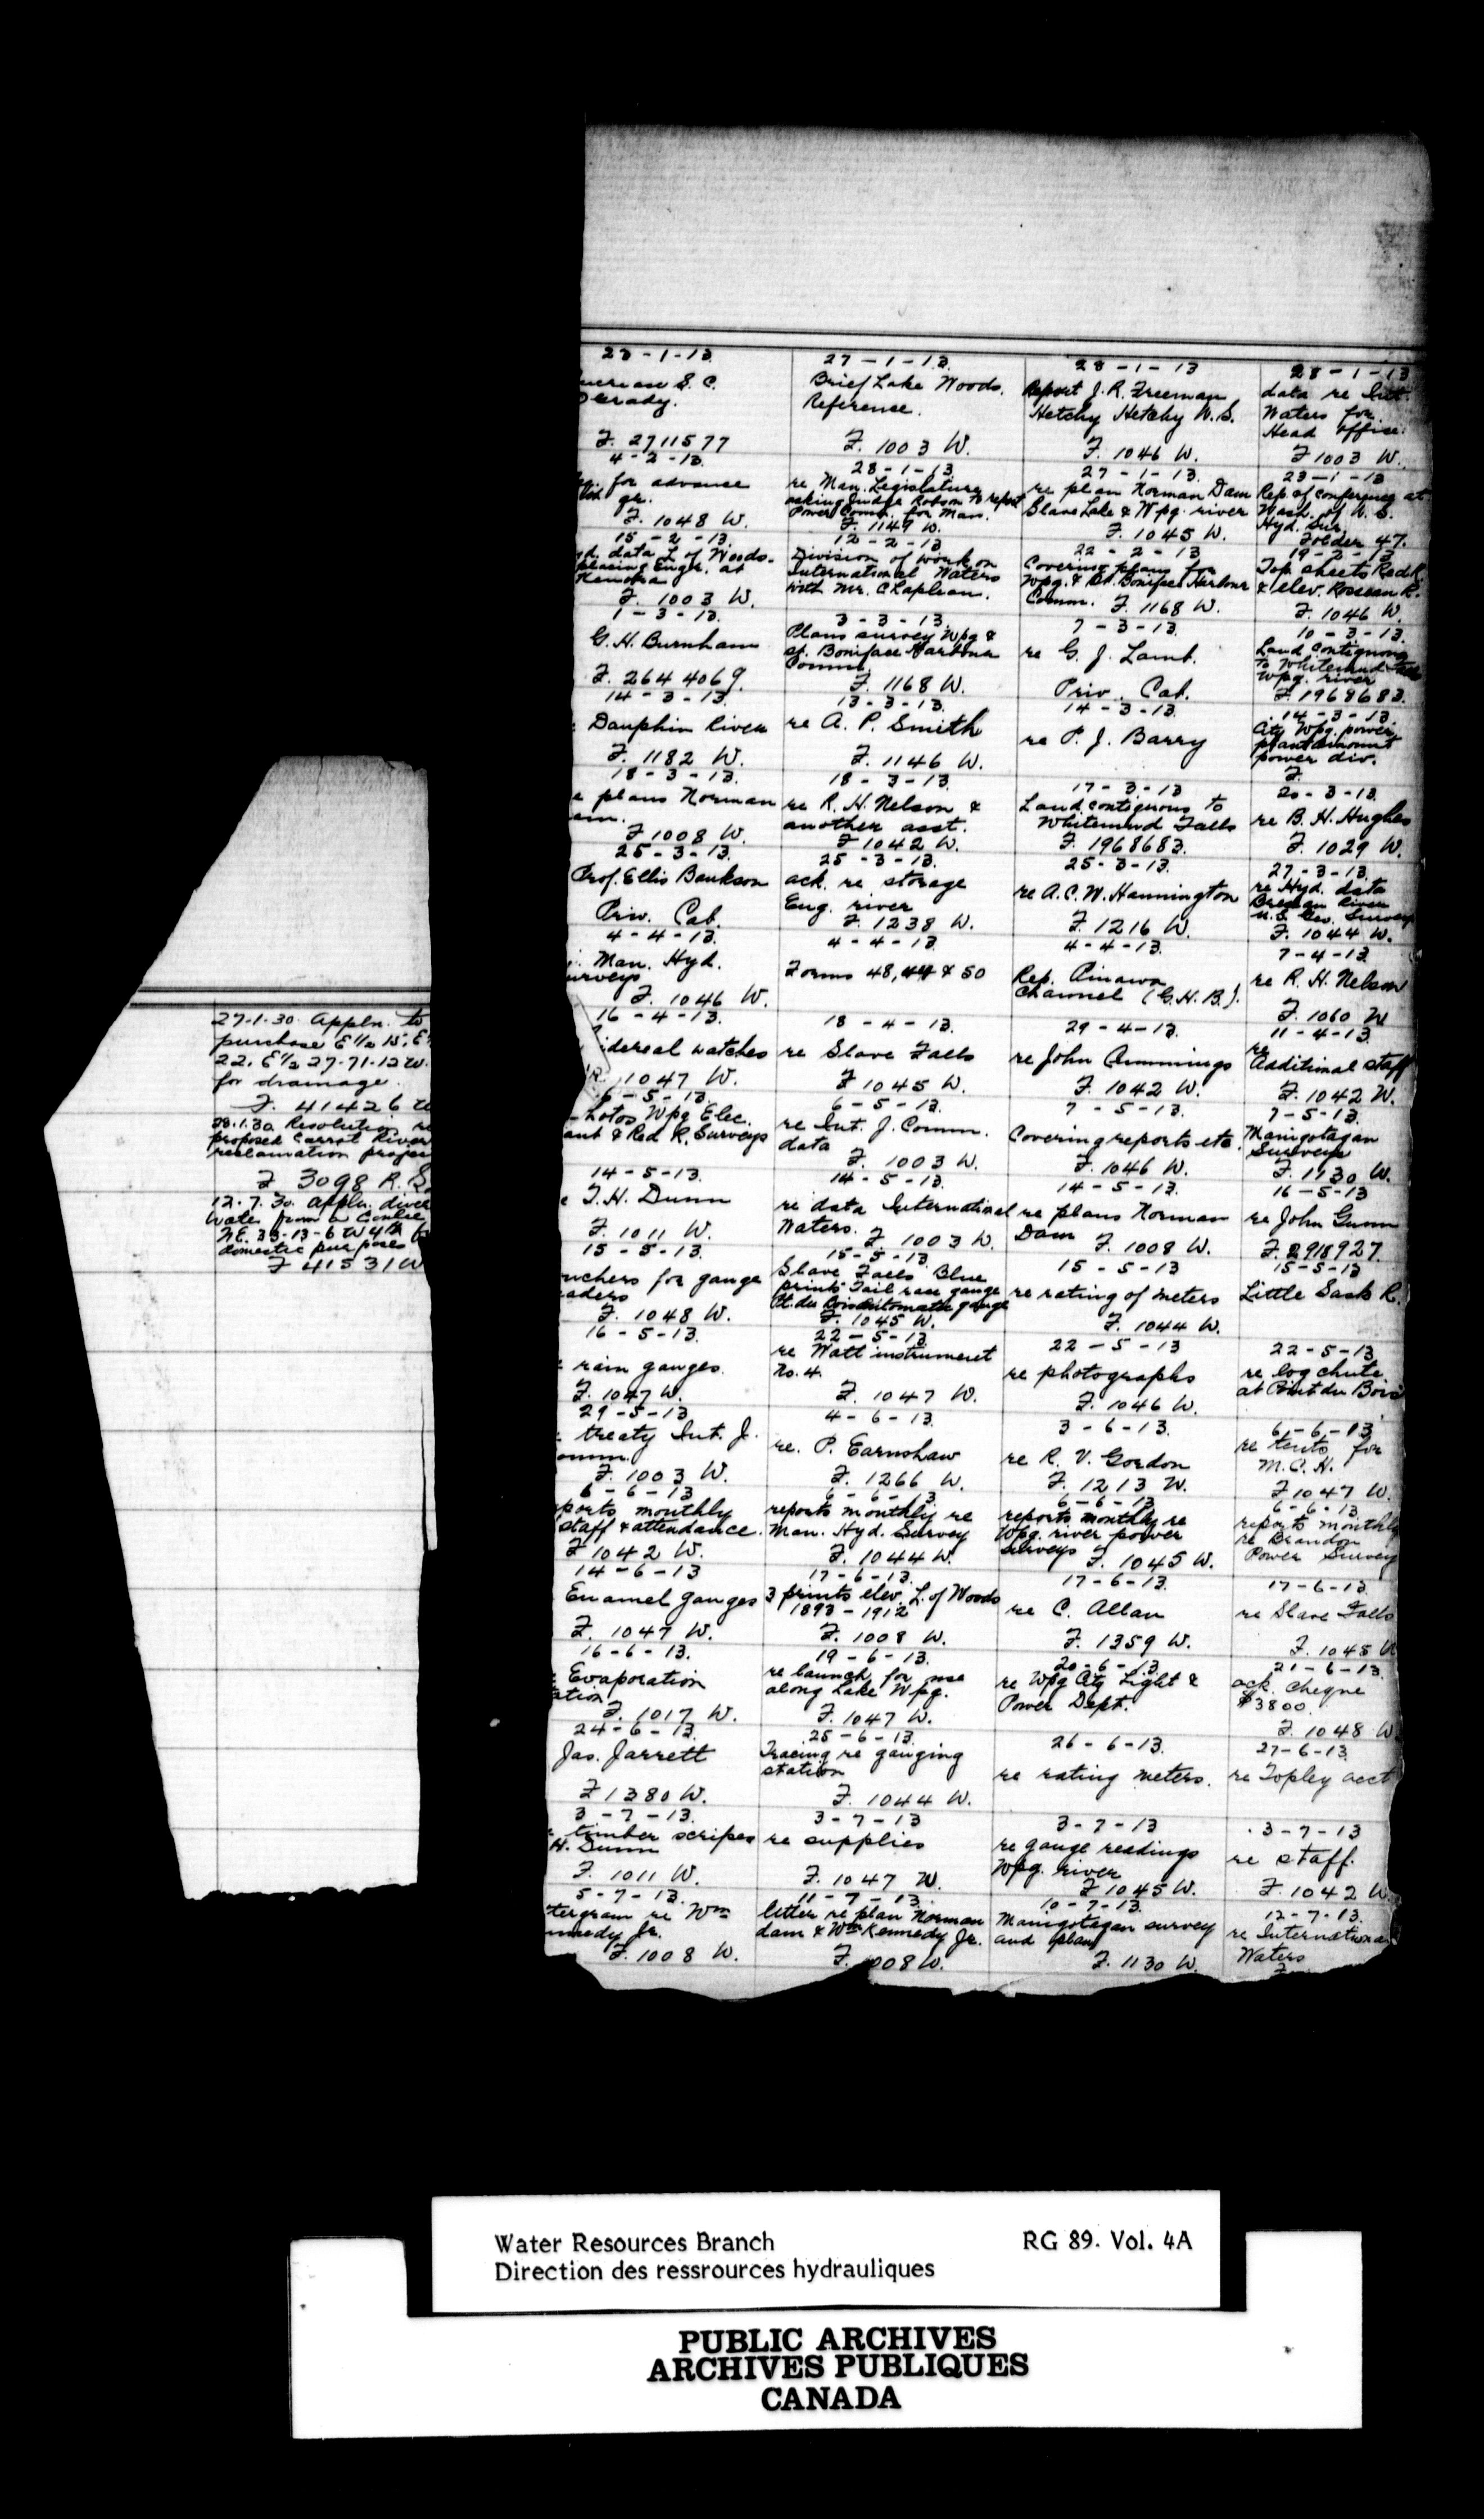 27-1-30. Appln. to
purchase E½ 15, E
22, E½ 27-71-12 W.
for drainage.
F. 41426 W
28.1.30 Resolution re
proposed Carrot River
reclamation project
F 3098 R.S.
12.7.30. appln. divert
water from a Coulee
N.E. 33-13-6 W 4th
domestic purposes
F 41531 W
23-1-13.
increase S. C.
F. 2711577
27-1-13.
Brief Lake Woods.
Reference.
F. 1003 W.
28-1-13
Report J. R. Freeman
Hetchy Hetchy W. S.
F. 1046 W.
28-1-13
data re Int.
Waters for
Head office.
F 1003 W.
4-2-13.
for advance
F. 1048 W.
28-1-13.
re Man. Legislature
asking Judge Robson to report
Power Comm. for Man.
F. 1149 W.
27-1-13.
re plan Norman Dam
Slave Lake & Wpg. river
F. 1045 W.
23-1-13
Rep. of Conference at
Wash. of U. S.
Hyd. Sur.
Folder 47.
15-2-13.
data L of Woods.
placing Engr. at
Kenora
F. 1003 W.
12-2-13
Division of work on
International Waters
with Mr. Chaplean.
22-2-13
Covering plans for
Wpg. & St. Boniface Harbour
Comm. F. 1168 W.
19-2-13
Top sheets Red R.
& elev. Roseau R.
F. 1046 W.
1-3-13.
G. H. Burnham
F. 2644069.
3-3-13.
Plans survey Wpg &
St. Boniface Harbour
Comm.
F. 1168 W.
7-3-13.
re G. J. Lamb.
Priv. Cab.
10-3-13.
Land Contiguous
to Whitemud Falls
Wpg. river
F. 1968683.
14-3-13.
Dauphin River
F. 1182 W.
13-3-13.
re A. P. Smith
F. 1146 W.
14-3-13.
re P. J. Barry
14-3-13.
City Wpg. power
plant amount
power div.
F.
18-3-13.
plans Norman
F 1008 W.
18-3-13.
re R. H. Nelson &
another asst.
F 1042 W.
17-3-13
Land contiguous to
Whitemud Falls
F. 1968683.
20-3-13.
re B. H. Hughes
F. 1029 W.
25-3-13.
Prof. Ellis Bankson
Priv. Cab.
25-3-13.
ack. re storage
Eng. river
F. 1238 W.
25-3-13.
re A. C. W. Hannington
F. 1216 W.
27-3-13.
re Hyd. data
River
U.S. Geo. Survey
F. 1044 W.
4-4-13.
Man. Hyd.
Surveys
F. 1046 W.
4-4-13
Forms 48, 49 & 50
4-4-13.
Rep. Pinawa
Channel (G. H. B.).
7-4-13.
re R. H. Nelson
F. 1060 W
16-4-13.
sidereal watches
1047 W.
18-4-13.
re Slave Falls
F 1045 W.
29-4-13.
re John Cummings
F. 1042 W.
11-4-13.
re
Additional staff
F. 1042 W.
6-5-13.
photos Wpg Elec.
& Red R. Surveys
6-5-13.
re Int. J. Comm.
data
F. 1003 W.
7-5-13.
Covering reports etc.
F. 1046 W.
7-5-13.
Manigotagan
Surveys
F. 1130 W.
14-5-13.
T. H. Dunn
F. 1011 W.
14-5-13.
re data International
Waters.
F. 1003 W.
14-5-13.
re plans Norman
Dam
F. 1008 W.
16-5-13
re John Gunn
F. 2918927.
15-5-13.
vouchers for gauge
readers
F. 1048 W.
15-5-13.
Slave Falls Blue
prints Tail race gauge
Pt. du Bois automatic gauge
F. 1045 W.
15-5-13
re rating of meters
F. 1044 W.
15-5-13
Little Sask R.
16-5-13.
rain gauges.
F. 1047 W.
22-5-13
re Watt instrument
No. 4.
F. 1047 W.
22-5-13
re photographs
F. 1046 W.
22-5-13
re log chute
at Point du Bois
29-5-13
treaty Int. J.
Comm.
F. 1003 W.
4-6-13.
re. P. Earnshaw
F. 1266 W.
3-6-13.
re R. V. Gordon
F. 1213 W.
6-6-13
re tents for
M. C. H.
F 1047 W.
6-6-13
reports monthly
staff & attendance.
F 1042 W.
6-6-13
reports monthly re
Man. Hyd. Survey
F. 1044 W.
6-6-13
reports monthly re
Wpg. river power
surveys F. 1045 W.
6-6-13
reports monthly
re Brandon
Power Survey
14-6-13
Enamel gauges
F. 1047 W.
17-6-13.
3 prints elev. L. of Woods
1893-1912
F. 1008 W.
17-6-13.
re C. Allan
F. 1359 W.
17-6-13.
re Slave Falls
F. 1045 W
16-6-13.
Evaporation
station
F. 1017 W.
19-6-13.
re launch for use
along Lake Wpg.
F. 1047 W.
20-6-13
re Wpg City Light &
Power Dept.
21-6-13.
ack. cheque
$3800.
F. 1048 W
24-6-13.
Jas. Jarrett
F 1380 W.
25-6-13.
Tracing re gauging
station
F. 1044 W.
26-6-13.
re rating meters.
27-6-13.
re Topley acct
3-7-13.
timber scripes
H. Dunn
F. 1011 W.
3-7-13
re supplies
F. 1047 W.
3-7-13
re gauge readings
Wpg. river
F 1045 W.
3-7-13
re staff.
F. 1042 W.
5-7-13.
re Wm
Kennedy Jr.
F. 1008 W.
11-7-13.
letter re plan Norman
dam & Wm Kennedy Jr.
F. 1008 W.
10-7-13.
Manigotagan survey
and plan
F. 1130 W.
12-7-13.
re International
Waters
Water Resources Branch RG 89. Vol. 4A
Direction des ressrources hydrauliques
PUBLIC ARCHIVES
ARCHIVES PUBLIQUES
CANADA